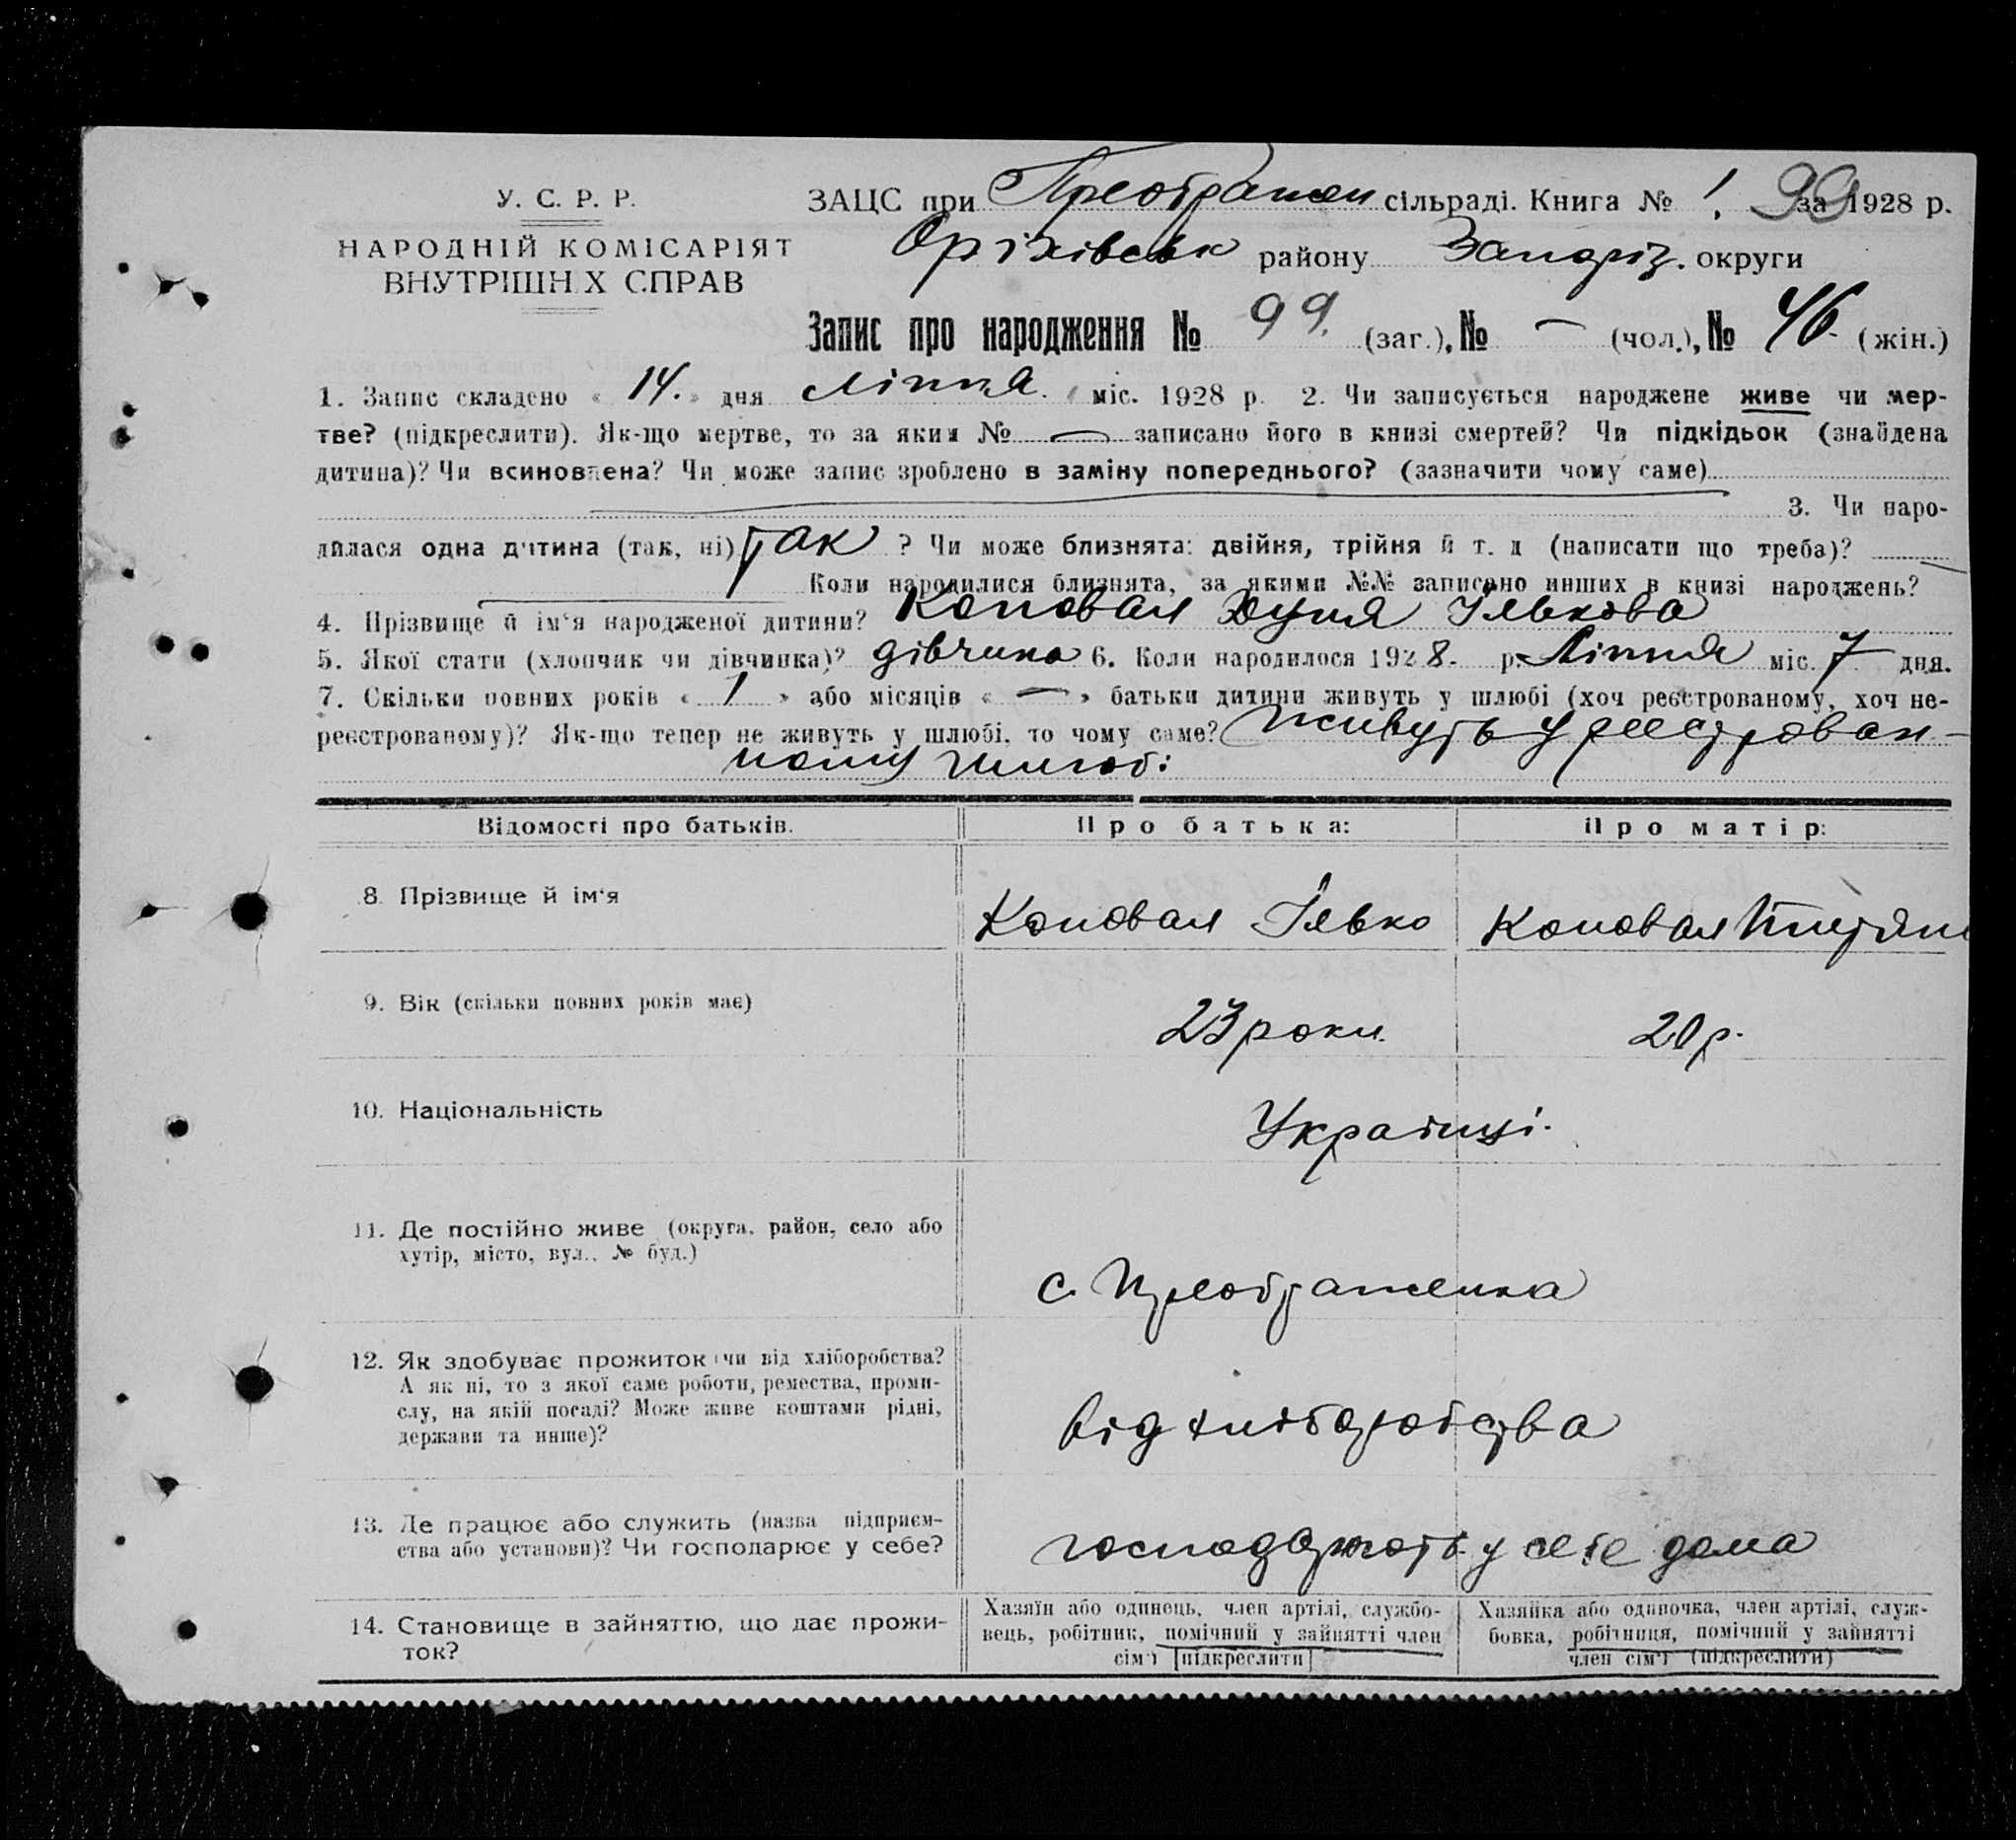 У. С. Р. Р.
НАРОДНІЙ КОМІСАРІЯТ
ВНУТРІШН Х СПРАВ
ЗАЦС при Преображен сільраді. Книга № 1. 99 за 1928 р.
Оріхівськ району Запоріз. округи
Запис про народження № 99. (заг.), № — (чол.), № 46 (жін.)
1. Запис складено « 14. » дня Ліпня. міс. 1928 р. 2. Чи записується народжене живе чи мер-
тве? (підкреслити). Як-що мертве, то за яким № — записано його в книзі смертей? Чи підкідьок (знайдена
дитина)? Чи всиновлена? Чи може запис зроблено в заміну попереднього? (зазначити чому саме)
3. Чи наро-
дилася одна дитина (так, ні) Так ? Чи може близнята: двійня, трійня й т. д (написати що треба)? —
Коли народилися близнята, за якими №№ записано инших в книзі народжень?
4. Прізвище й ім'я народженої дитини? Коповая Дуня Ількова
5. Якої стати (хлопчик чи дівчинка)? дівчина 6. Коли народилося 1928. р. Ліпня міс. 7 дня.
7. Скільки повних років « 1 » або місяців « — » батьки дитини живуть у шлюбі (хоч реєстрованому, хоч не-
реєстрованому)? Як-що тепер не живуть у шлюбі, то чому саме? живуть у реєстрован-
ному шлюбі
Відомості про батьків.
Про батька:
Про матір:
8. Прізвище й ім'я
Коповая Ілько
Коповая
9. Вік (скільки повних років має)
23 роки.
20 р.
10. Національність
Українці.
11. Де постійно живе (округа, район, село або
хутір, місто, вул., № буд.)
с. Преображенка
12. Як здобуває прожиток (чи від хліборобства?
А як ні, то з якої саме роботи, ремества, проми-
слу, на якій посаді? Може живе коштами рідні,
держави та инше)?
від хліборобства
13. Де працює або служить (назва підприєм-
ства або установи)? Чи господарює у себе?
господарюють у себе дома
14. Становище в зайняттю, що дає прожи-
ток?
Хазяїн або одинець, член артілі, службо-
вець, робітник, помічний у зайнятті член
сім'ї [підкреслити]
Хазяйка або одиночка, член артілі, служ-
бовка, робітниця, помічний у зайнятті
член сім'ї (підкреслити)